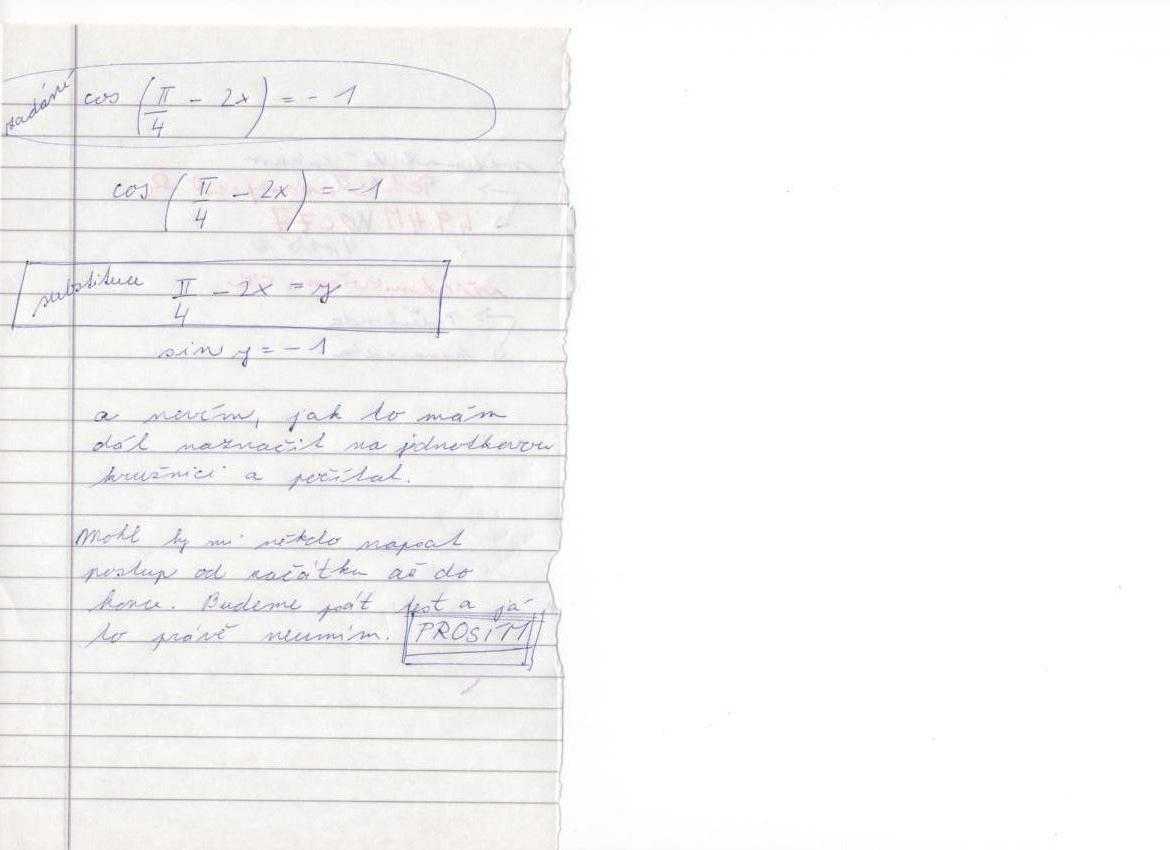 zadání cos (π/4 - 2x) = - 1
cos (π/4 - 2x) = -1
substituce π/4 - 2x = y
sin y = - 1
a nevím, jak to mám
dál naznačit na jednotkovou
kružnici a počítat.
Mohl by mi někdo napsat
postup od začátku až do
konce. Budeme psát test a já
to právě neumím. PROSÍM